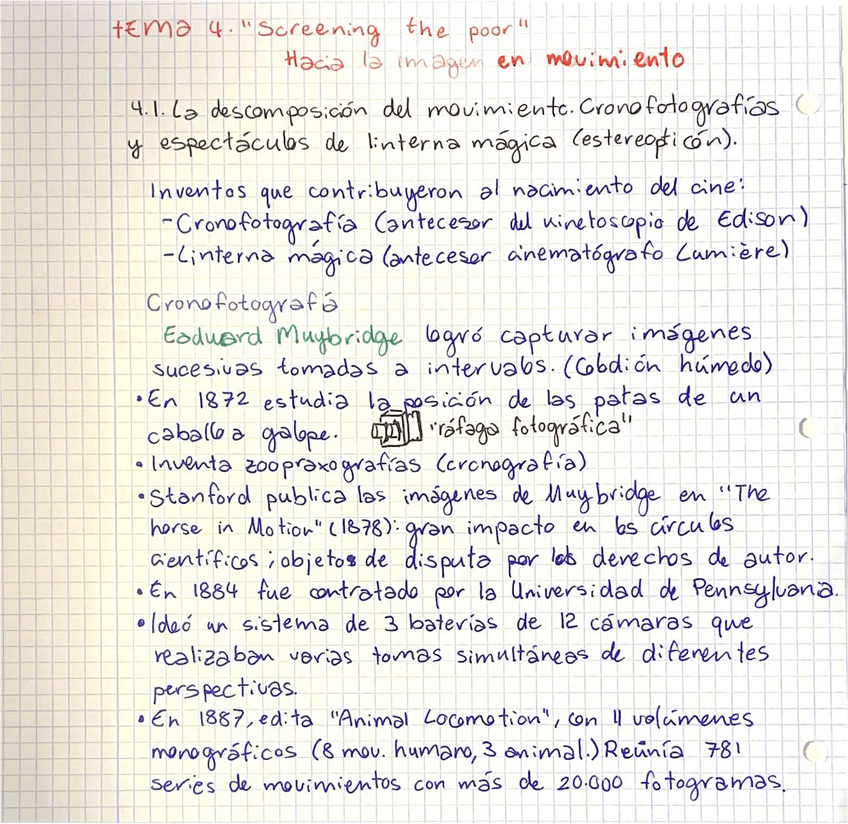 tEMA 4. "Screening the poor"
Hacia la imagen en movimiento
4.1. La descomposición del movimiento. Cronofotografías
y espectáculos de linterna mágica (estereopticón).
Inventos que contribuyeron al nacimiento del cine:
- Cronofotografía (antecesor del kinetoscopio de Edison)
- Linterna mágica (antecesor cinematógrafo Lumière)
Cronofotografía
Eaduard Muybridge logró capturar imágenes
sucesivas tomadas a intervalos. (Colodión húmedo)
• En 1872 estudia la posición de las patas de un
caballo a galope. "ráfaga fotográfica"
• Inventa zoopraxografías (cronografía)
• Stanford publica las imágenes de Muybridge en "The
horse in Motion" (1878): gran impacto en los círculos
científicos; objetos de disputa por los derechos de autor.
• En 1884 fue contratado por la Universidad de Pennsylvana.
• Ideó un sistema de 3 baterías de 12 cámaras que
realizaban varias tomas simultáneas de diferentes
perspectivas.
• En 1887, edita "Animal Locomotion", con 11 volúmenes
monográficos (8 mov. humano, 3 animal.) Reunía 781
series de movimientos con más de 20.000 fotogramas.